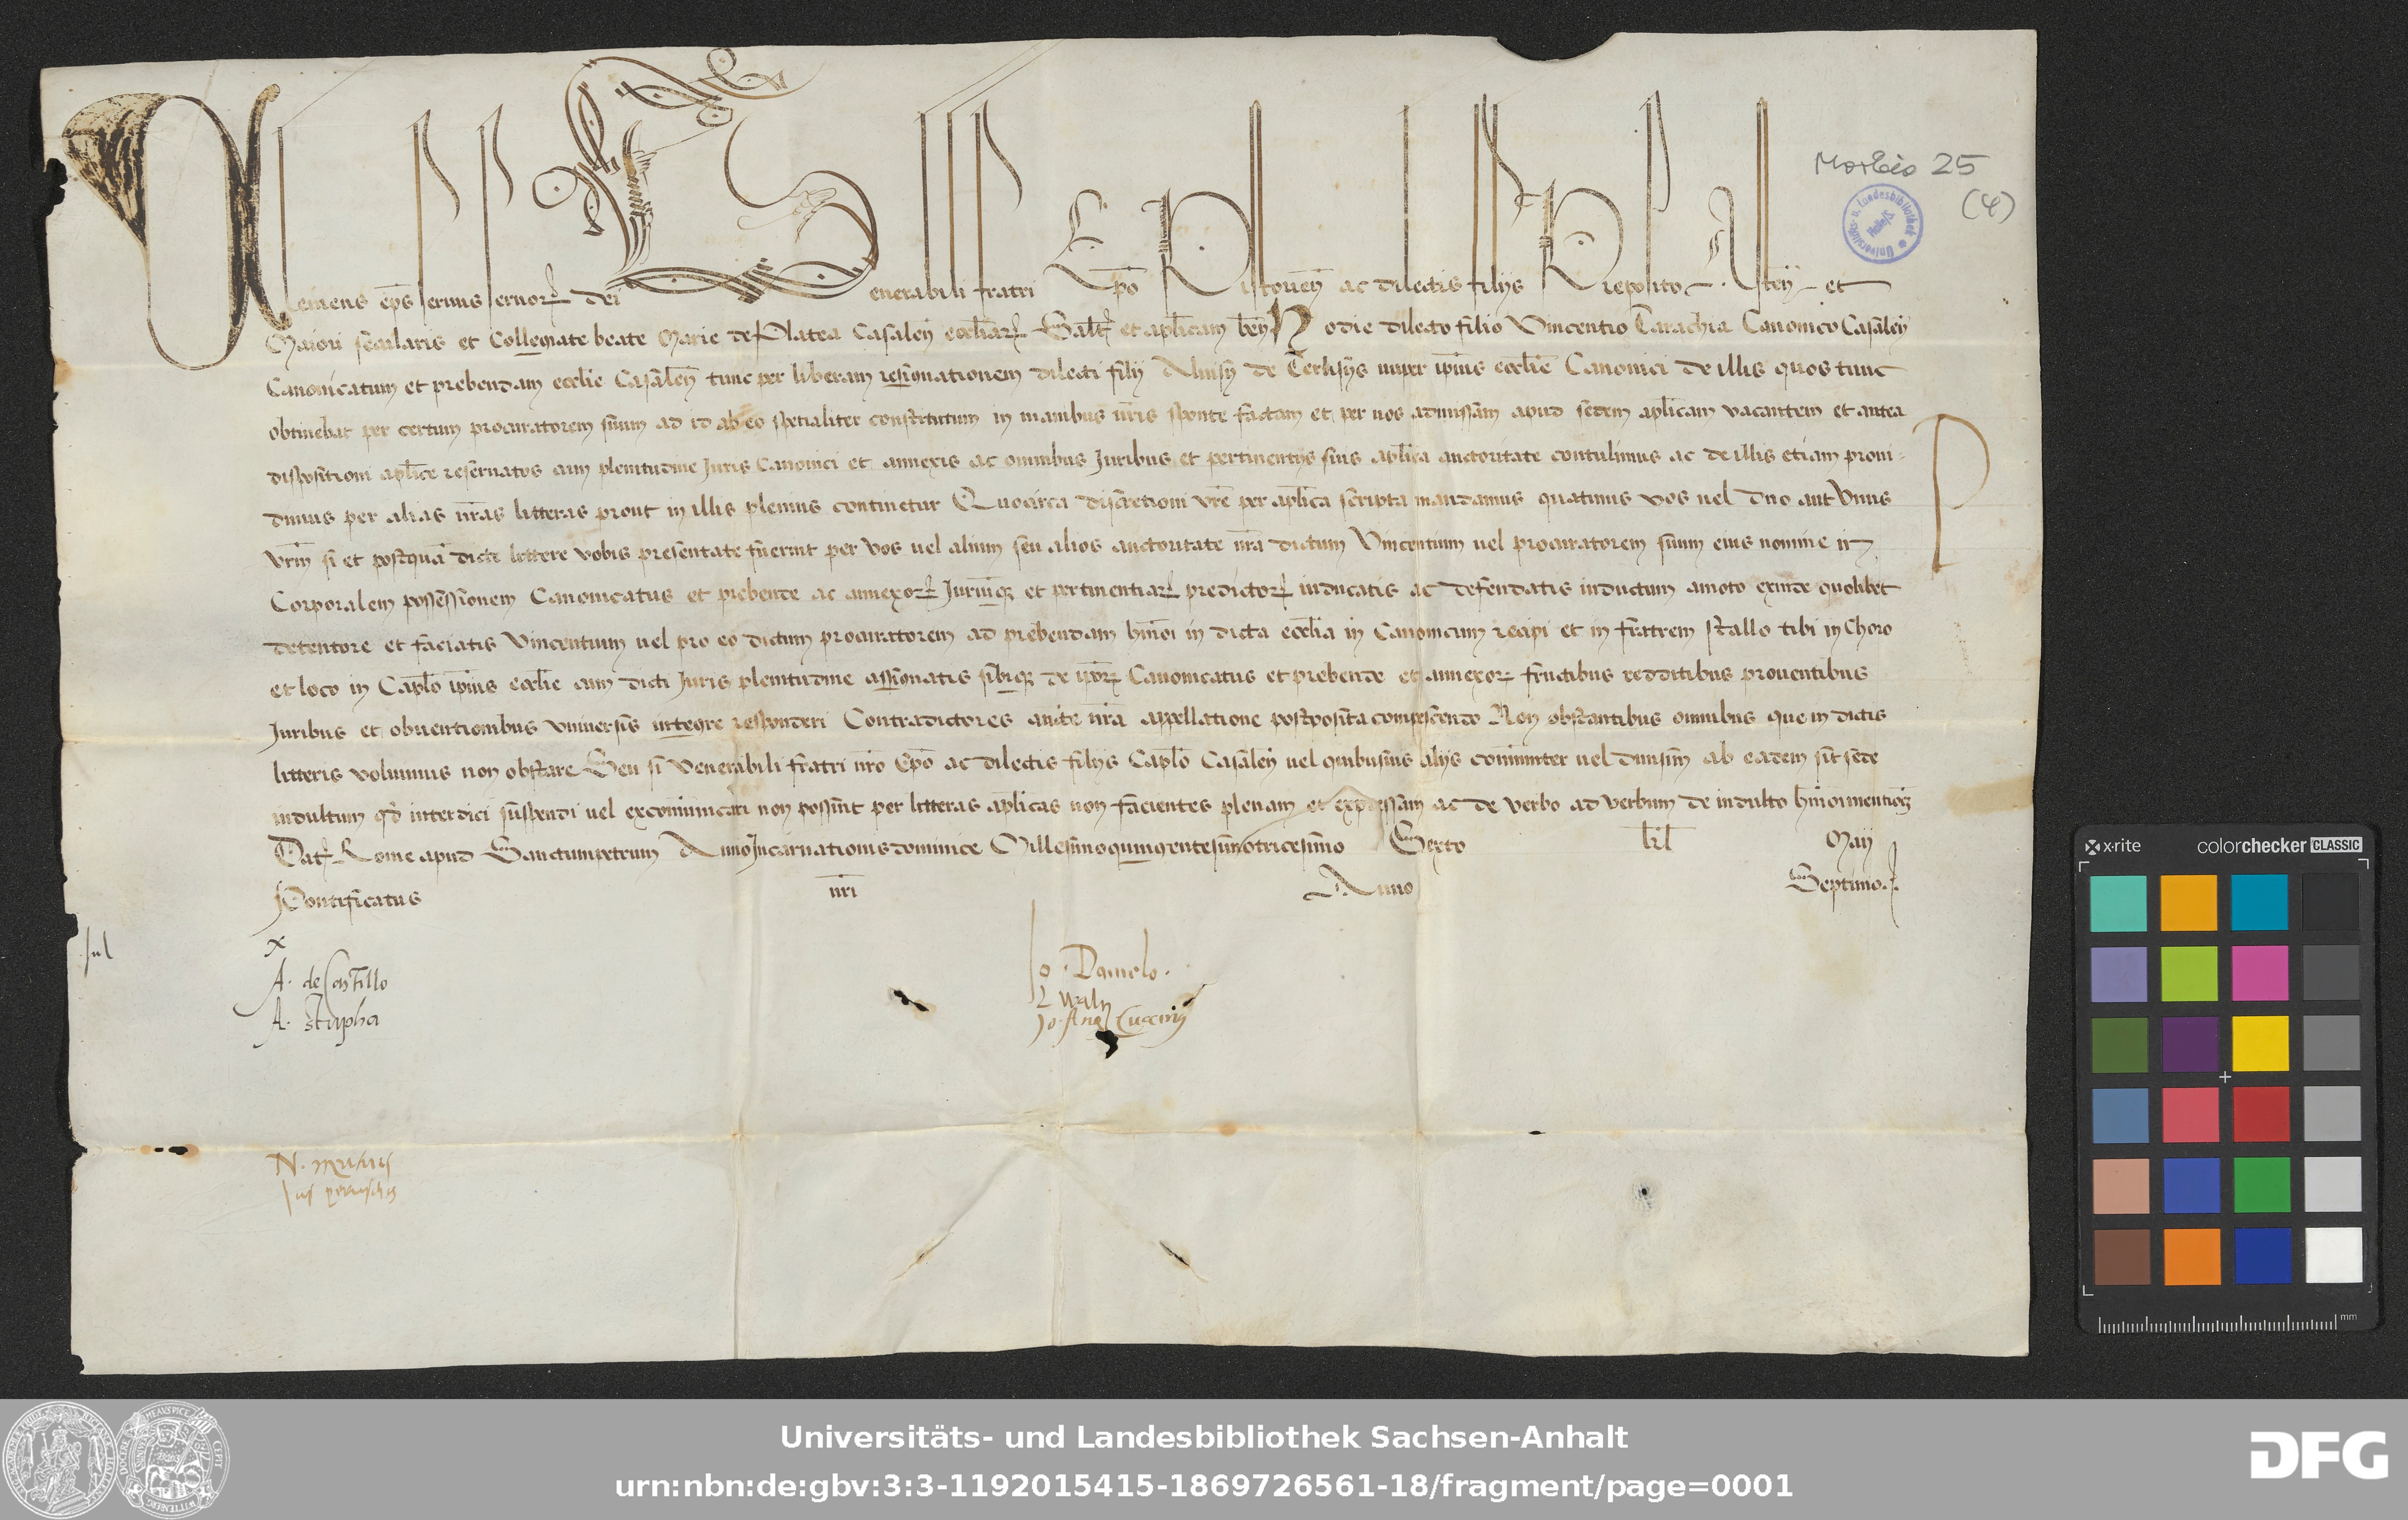 Morbio 25
(4)
Clemens ep̄s seruus seruoꝝ dei Venerabili fratri Ep̄o ac dilectis filijs Preposito Asteñ et
Maiori secularis et Collegiate beate Marie de Platea Casaleñ eccl̄iaꝝ Salt̄ et apl̄icam beñ Hodie dilecto filio Vincentio Tarachia Canonico Casaleñ
Canonicatum et prebendam eccl̄ie Casaleñ tunc per liberam resignationem dilecti filij Aluisij de nuper ip̄ius eccl̄ie Canonici de illis quos tunc
obtinebat per certum procuratorem suum ad id ab eo spetialiter constitutum in manibus nr̄is sponte factam et per nos admissam apud sedem apl̄icam vacantem et antea
dispositioni apl̄ice reseruatos cum plenitudine Juris Canonici et annexis ac omnibus Juribus et pertinentijs suis apl̄ica auctoritate contulimus ac de illis etiam proui-
dimus per alias nr̄as litteras prout in illis plenius continetur Quocirca discretioni vr̄e per apl̄ica scripta mandamus quatinus vos uel duo aut Vnus
vrm̄ si et postquā dicte littere vobis presentate fuerint per vos uel alium seu alios auctoritate nr̄a dictum Vincentium uel procuratorem suum eius nomine in
Corporalem possessionem Canonicatus et prebende ac annexoꝝ Juriumq̄ et pertinentiaꝝ predictoꝝ inducatis ac defendatis inductum amoto exinde quolibet
detentore et faciatis Vincentium uel pro eo dictum procuratorem ad prebendam hm̄oi in dicta eccl̄ia in Canonicum recipi et in fratrem stallo sibi in Choro
et loco in Capl̄o ip̄ius eccl̄ie cum dicti Juris plenitudine assignatis sibiq̄ de ip̄oꝝ Canonicatus et prebende et annexoꝝ fructibus redditibus prouentibus
Juribus et obuentionibus vniuersis integre responderi Contradictores aucte nr̄a appellatione postposita compescendo Non obstantibus omnibus que in dictis
litteris volumus non obstare Seu si Venerabili fratri nr̄o Ep̄o ac dilectis filijs Capl̄o Casaleñ uel quibusuis alijs cōmuniter uel diuisim ab eadem sit sede
indultum qd̄ interdici suspendi uel excōmunicari non possint per litteras apl̄icas non facientes plenam et expressam ac de verbo ad verbum de indulto hm̄oi mentioneꝫ
Dat̄ Rome apud Sanctumpetrum Anno Incarnationis dominice Millesimoquingentesimotricesimo Sexto kl̄ Maij
Pontificatus nr̄i Anno Septimo
Jul
x
A. de Castillo
A. stapha
Jo. Danielo.
Universitäts- und Landesbibliothek Sachsen-Anhalt
urn:nbn:de:gbv:3:3-1192015415-1869726561-18/fragment/page=0001
DFG
x-rite colorchecker CLASSIC
mm